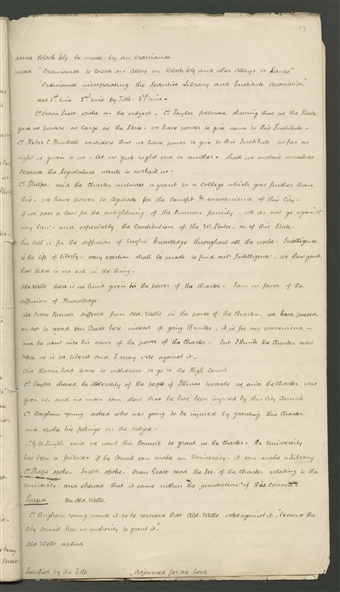 across Block 69 be made by an Ordinance
passed "Ordinance to locate an Alley in Block 69 and other Alleys or Lanes"
"Ordinance incorporating the Seventies Library and Institute Association"
read 1st time 2nd time by Title. 3rd time.
Cr Orson Pratt spoke on the subject. Cr Taylor followed shewing that as the State
gave us powers as large as the State. we have power to give same to this Institute.
Cr Heber C. Kimball considers that we have power to give to this Institute as far as
right is given to us. let us give right one to another. shall we curtail ourselves
because the Legislature wants to curtail us.
Cr Phelps. said the Charter includes a grant to a college which goes further than
this. we have power to legislate for the benefit & convenience of this City.
if we pass a law for the enlightening of the human family. we do not go against
any law. and especially the Constitution of the U. States. or of this State.
his bill is for the diffusion of Useful Knowledge throughout all the world. Intelligence
is the life of liberty. every exertion shall be made to find out Intelligence. we show good,
but there is no evil in the thing.
Ald. Wells there is no limit given to the power of the charter. I am in favor of the
diffusion of Knowledge.
Ald. differed from Ald. Wells in the power of the Charter. we have passed
an act to record our Deeds here instead of going 18 miles. it is for my convenience.
and he went into his views of the power of the Charter. but I think the Charter now
before us is too liberal and I may vote against it.
Ald. Harris had leave to withdraw to go to the High Council
Cr Taylor shewed the liberality of the people of Illinois towards us, since the Charter was
given us and no man can shew that he has been injured by this City Council
Cr Brigham Young asked who was going to be injured by granting this Charter
and spoke his feelings on the subject.
Cr G. A. Smith said we want this Council to grant us the Charter. the University
has been a failure. if the Council can make an University. it can make a Library
Cr Phelps spoke. spoke. Orson Pratt read the Sec. of the Charter relating to the
University and shewed that it came within the jurisdiction of this Council
Passed No. Ald. Wells.
Cr Brigham Young wants it to be recorded that Ald. Wells voted against it, "because the
City Council has no authority to grant it."
Ald. Wells replied
by the Title Adjourned for one hour